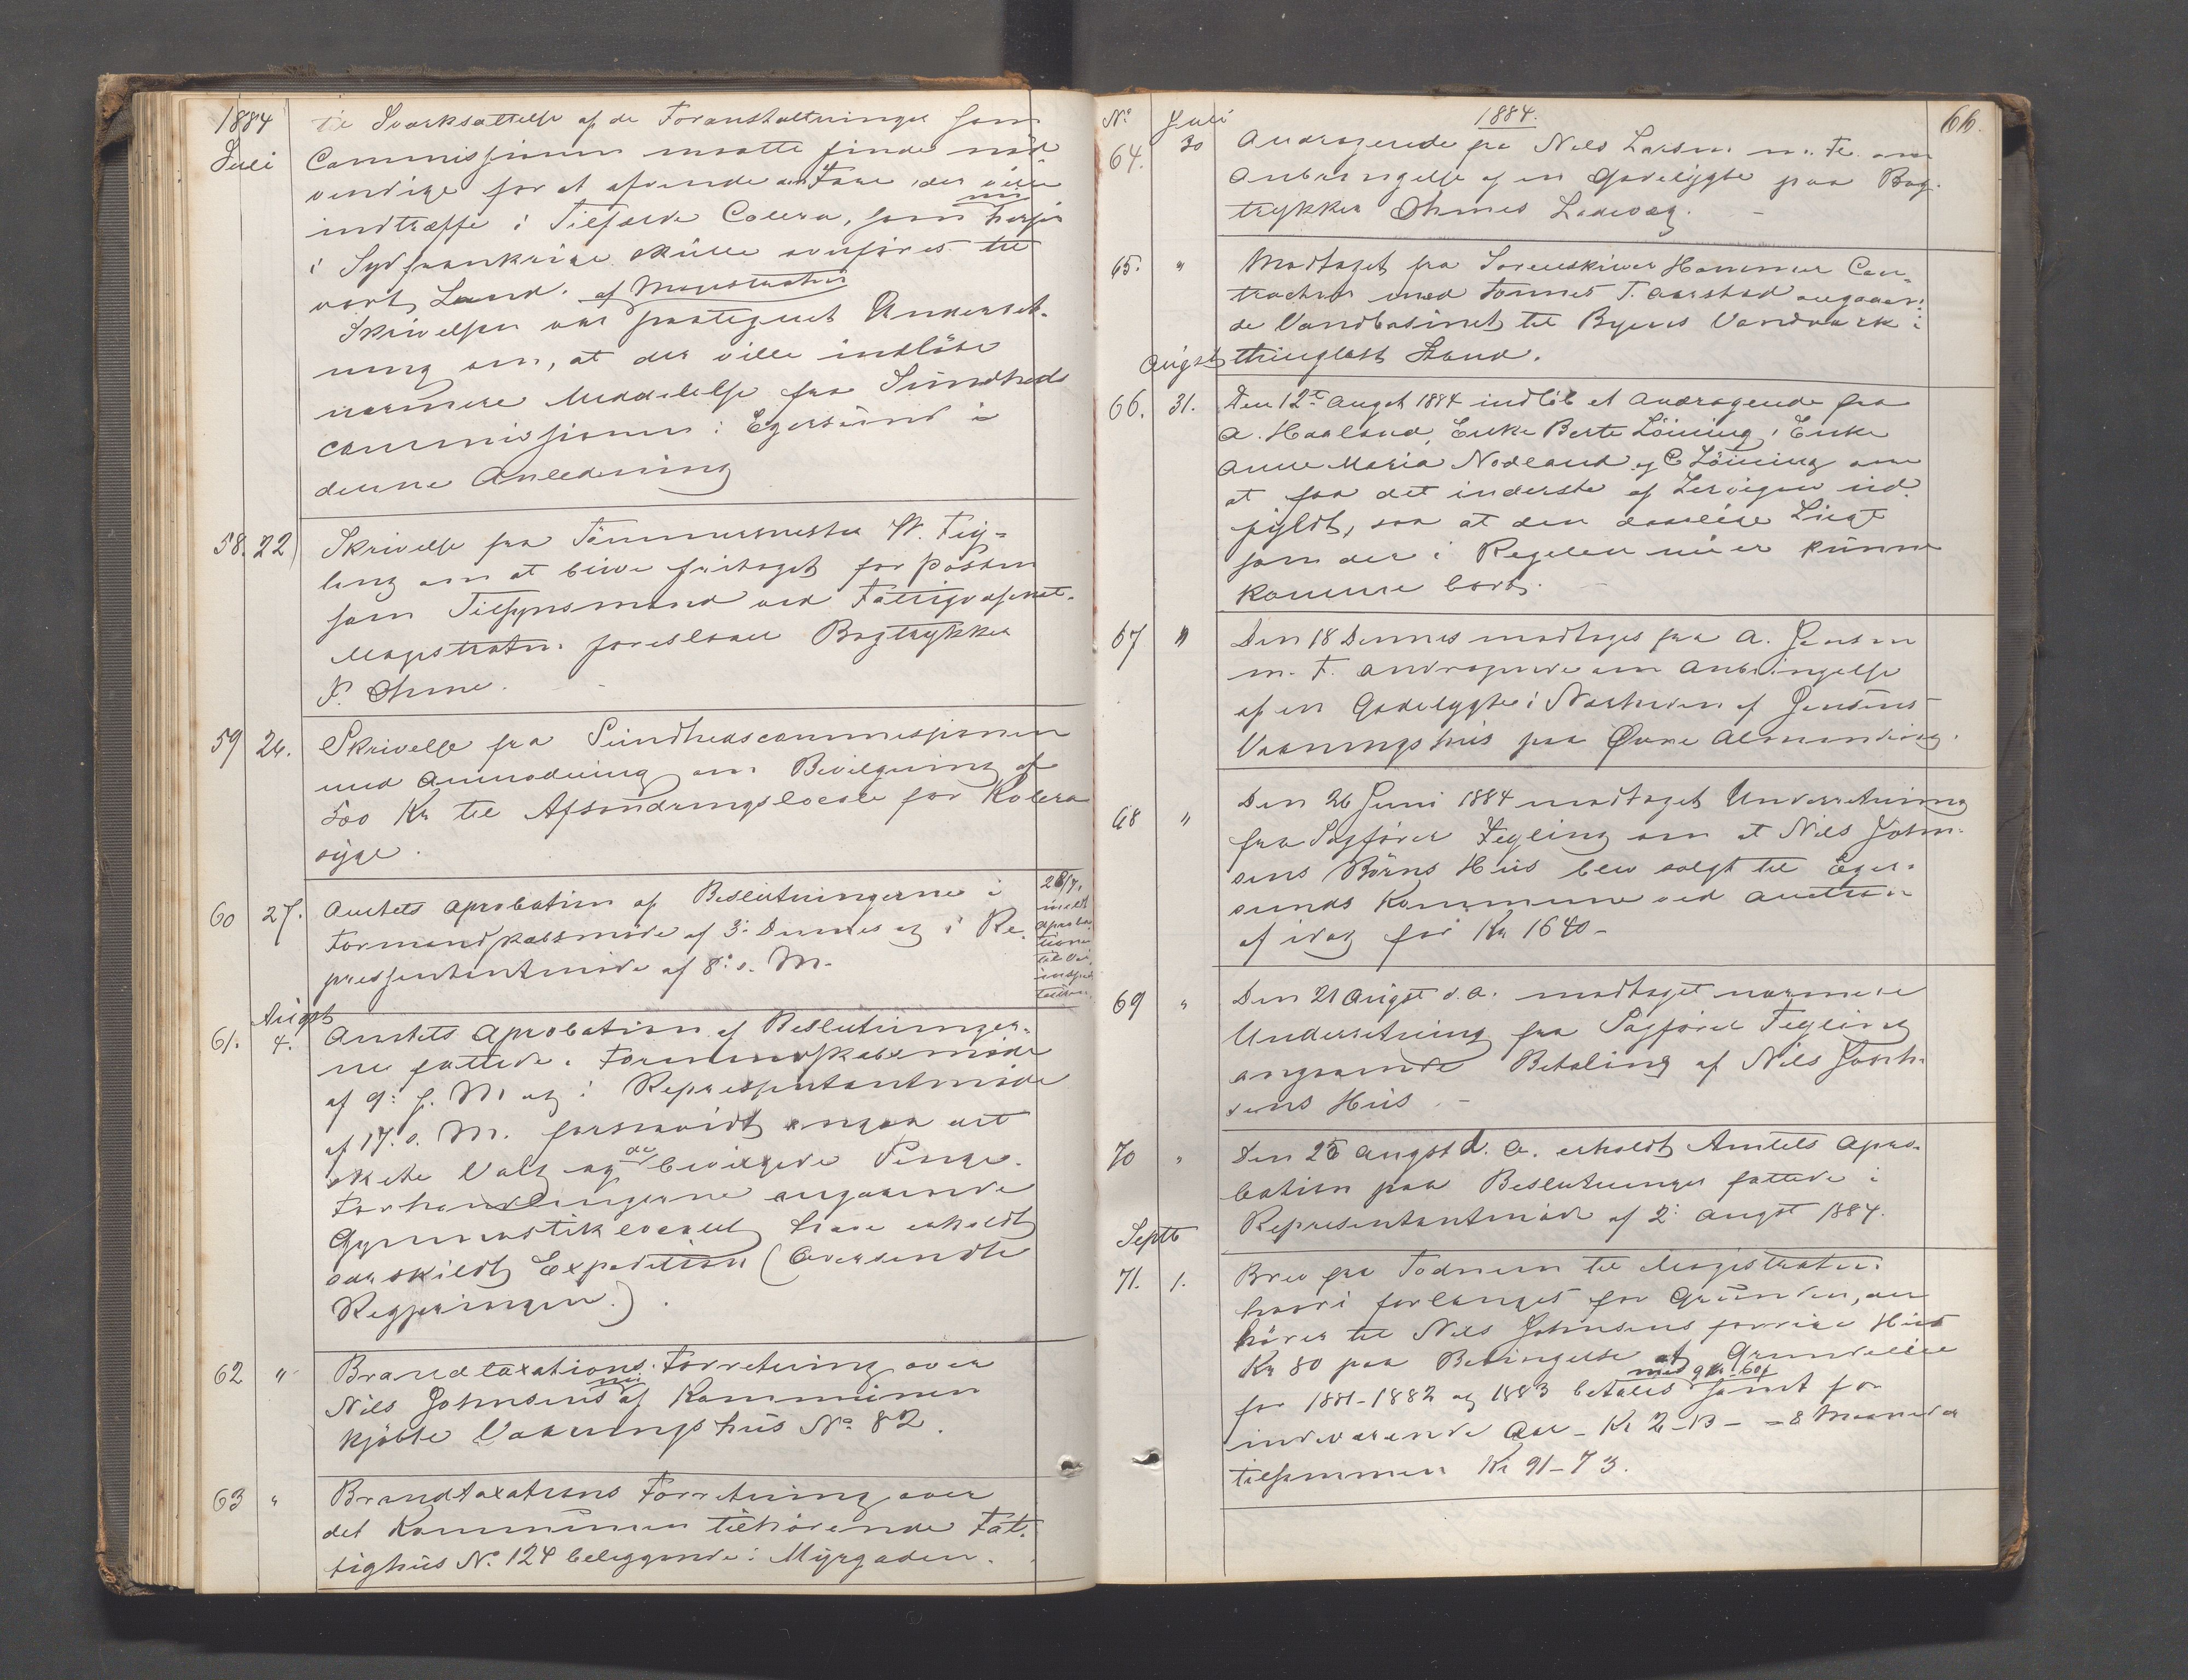 1884
Juli
til Iværksættelse af de Foranstaltninger som
Commissjonen maatte finde nød-
vendige for at afvende den Fare, der ville
indtræffe i Tilfælde Colera, som nu hersker
i Sydfrankrige skulle overføres til
vort Land. af Magistraten
Skrivelsen var paategnet Underret-
ning om, at der ville indløbe
nærmere Meddelelse fra Sundheds
commissjonen i Egersund i
denne Anledning
58. 22 Skrivelse fra Tömmermester W. Feyling
om at blive fritaget for Posten
som Tilsynsmand ved Fattigvæsenet.
Magistraten foreslaaer Bogtrykker
F. Ohme.
59 26. Skrivelse fra Sundhedscommissjonen
med Anmodning om Bevilgning af
500 Kr til Afsondringslocale for Kolera
syge.
60 27. Amtets Aprobation af Beslutningerne i
Formandskabsmøde af 3: Dennes og i Re-
pressentantmøde af 8: s. M.
28/7.
meldt
Aproba-
tionen
til Vei
inspek
teuren
August
61. 4. Amtets Aprobation af Beslutninger-
ne fattede i Formandskabsmøde
af 9: f. M og i Repressentantmøde
af 17. s. M. forsaavidt angaar det
skete Valg og de bevilgede Penge.
Forhandlingerne angaaende
Gymnastiklocalet have erholdt
særskildt Expedition (Oversendte
Regjeringen.)
62 " Brandtaxations Forretning over
Nils Johnsens nu af Kommunen
kjøbte Vaaningshus No 82.
63 " Brandtaxations Forretning over
det Kommunen tilhørende Fat-
tighus No. 124 beliggende i Myrgaden.
No Juli 1884. 66.
64. 30 Andragende fra Nils Larsen m. Fl. om
Anbringelse af en Gadelygte paa Bog-
trykker Ohmes Ladevæg.
65. " Modtaget fra Sorenskriver Hammer Con-
tracten med Tønnes T. Aarstad angaaen-
de Vandbasinet til Byens Vandværk i
thinglæst Stand.
August
66. 31. Den 12te Augst 1884 indløb et Andragende fra
A. Haaland, Enke Berte Löining, Enke
Anne Maria Nodland og C Löining om
at faa det inderste af Lervigen ud-
fyldt, saa at den daarlige Lugt
som der i Regelen nu er kunne
komme bort.
67 " Den 18 Dennes modtoges fra A. Jensen
m. F. Andragende om Anbringelse
af en Gadelygte i Nærheden af Jensens
Vaaningshus paa Øvre Almending.
68 " Den 26 Juni 1884 modtaget Underretning
fra Sagfører Feyling om at Nils John-
sens Börns Hus blev solgt til Eger-
sunds Kommune ved Auction
af idag for Kr 1640-
69 " Den 21 August d. A. modtaget nærmere
Underretning fra Sagfører Feyling
angaaende Betaling af Nils John-
sens Hus. -
70 " Den 25 Augst d. A. erholdt Amtets Apro-
bation paa Beslutninger fattede i
Representantmøde af 2: Augst 1884.
Septb
71. 1. Brev fra Todnem til Magistraten
hvori forlanges for Grunden, der
hører til Nils Johnsens forrige Hus
Kr 80 paa Betingelse af Grundleie
for 1881-1882 og 1883 betales med 9 Kr 60 samt for
indeværende Aar - Kr 2-13 - = 8 Maaneder
tilsammen Kr 91-73.